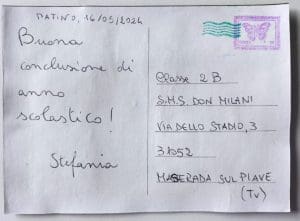 PATINO, 16/05/2024
Buona
conclusione di
anno
scolastico!
Stefania
Classe 2B
S.M.S. DON MILANI
VIA DELLO STADIO, 3
31052
MASERADA SUL PIAVE
(TV)